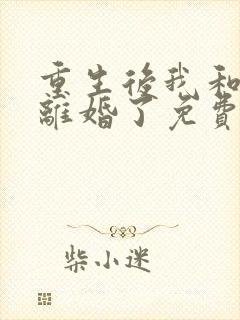 重生後我和
離婚了免費
柴小迷